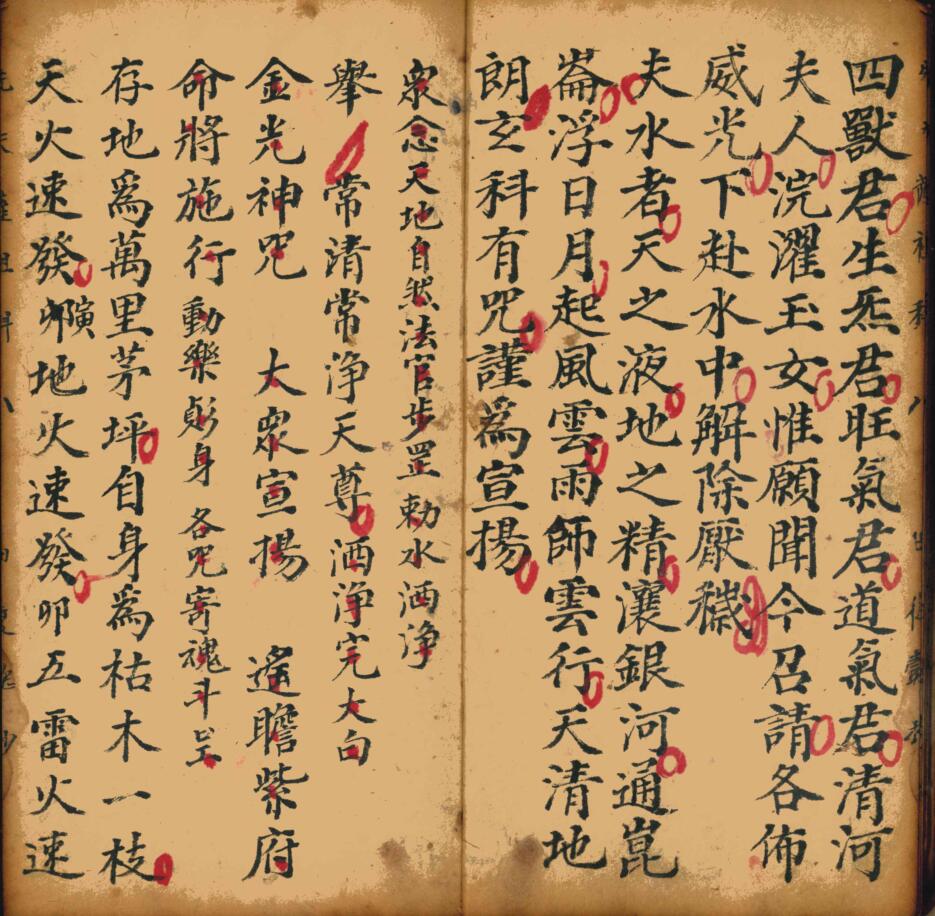 四獸君生炁君旺氣君道氣君清河
夫人浣濯玉女惟願聞今召請各佈
威光下赴水中解除厭穢
夫水者天之液地之精瀼銀河通崑
崙浮日月起風雲雨師雲行天清地
朗玄科有咒謹爲宣揚
衆念天地自然法官步罡勅水洒净
舉常清常净天尊洒净完大白
金光神咒 大衆宣揚 遙瞻紫府
命將施行動樂 身各咒寄魂斗
存地爲萬里茅坪自身爲枯木一枝
天火速發 地火速發卯五雷火速